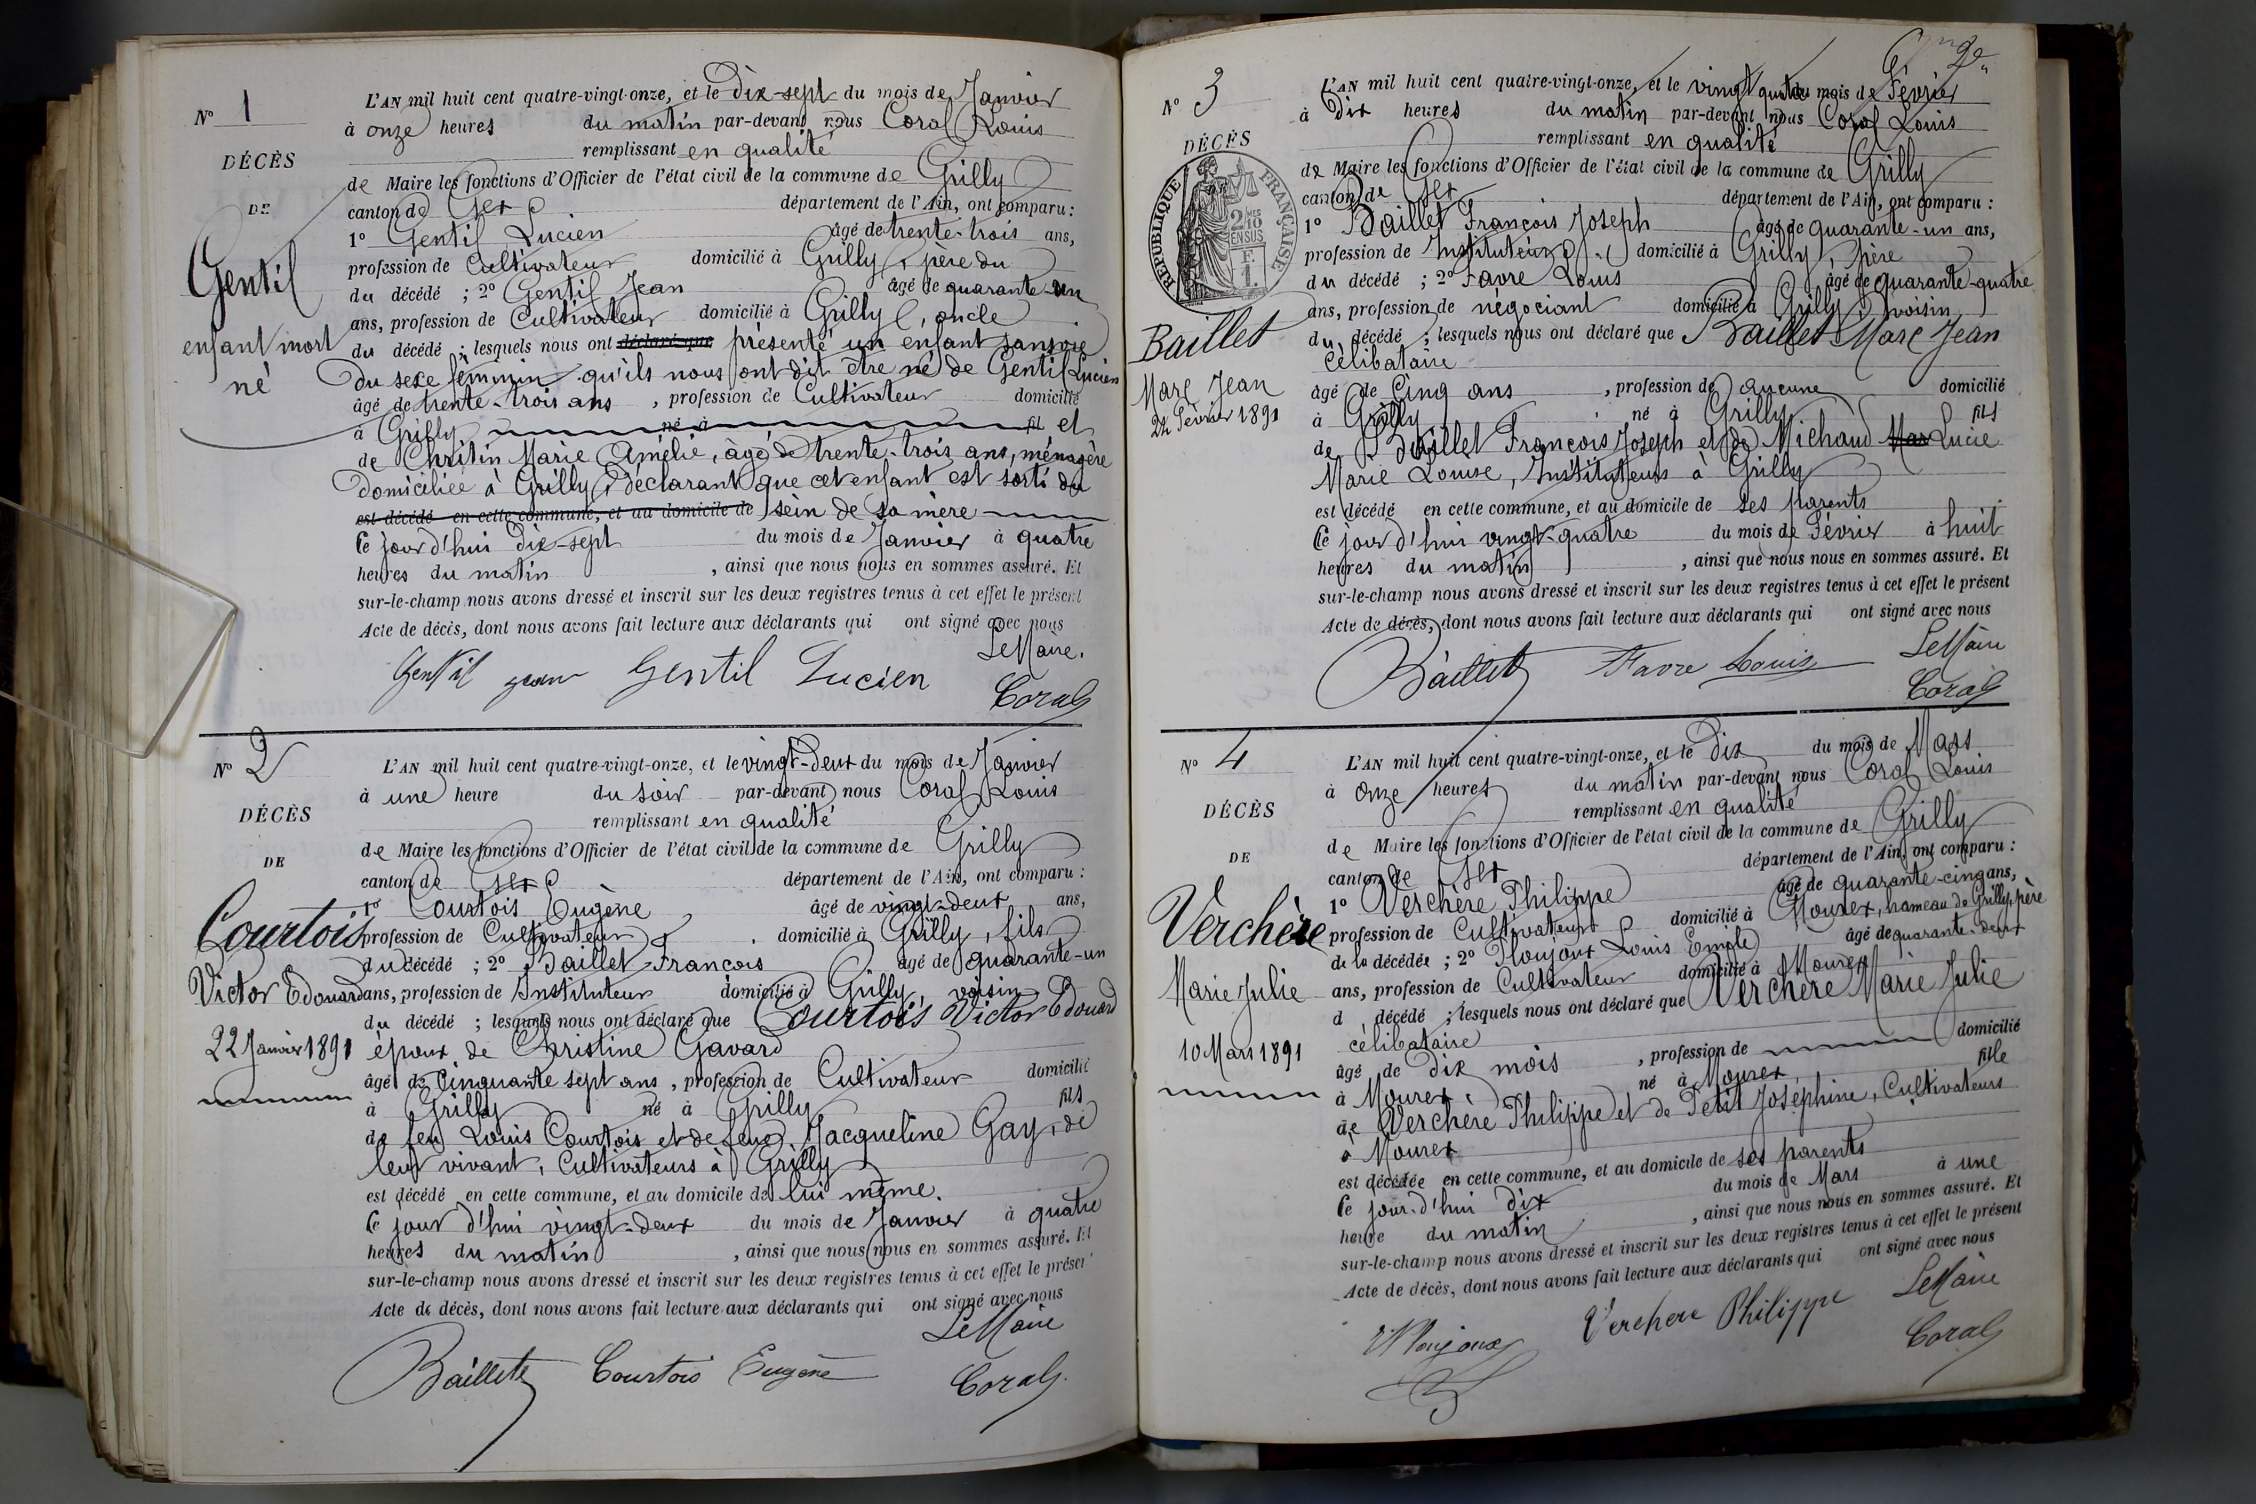 N° 1
DÉCÈS
DE
Gentil
enfant mort
né
L'AN mil huit cent quatre-vingt-onze, et le Dix-sept du mois de Janvier
à onze heures du matin par-devant nous Coral Louis
remplissant en qualité
de Maire les fonctions d'Officier de l'état civil de la commune de Grilly
canton de Gex département de l'Ain, ont comparu :
1° Gentil Lucien âgé de trente-trois ans,
profession de Cultivateur domicilié à Grilly, père du
du décédé ; 2° Gentil Jean âgé de quarante-un
ans, profession de Cultivateur domicilié à Grilly, oncle
du décédé ; lesquels nous ont déclaré que présenté un enfant sans vie
du sexe féminin qu'ils nous ont dit être né de Gentil Lucien
âgé de trente-trois ans, profession de Cultivateur domicilié
à Grilly né à fil et
de Chritin Marie Amélie, âgé de trente-trois ans, ménagère
domiciliée à Grilly, déclarant que cet enfant est sorti du
est décédé en cette commune, et au domicile de sein de sa mère
ce jour d'hui dix-sept du mois de Janvier à quatre
heures du matin, ainsi que nous nous en sommes assuré. Et
sur-le-champ nous avons dressé et inscrit sur les deux registres tenus à cet effet le présent
Acte de décès, dont nous avons fait lecture aux déclarants qui ont signé avec nous
Le Maire.
Gentil jean Gentil Lucien Coral
N° 2
DÉCÈS
DE
Courtois
Victor Edouard
22 Janvier 1891
L'AN mil huit cent quatre-vingt-onze, et le vingt-deux du mois de Janvier
à une heure du soir par-devant nous Coral Louis
remplissant en qualité
de Maire les fonctions d'Officier de l'état civil de la commune de Grilly
canton de Gex département de l'Ain, ont comparu :
1° Courtois Eugène, âgé de vingt-deux ans,
profession de Cultivateur, domicilié à Grilly, fils
du décédé ; 2° Baillet François âgé de quarante-un
ans, profession de Instituteur domicilié à Grilly, voisin
du décédé ; lesquels nous ont déclaré que Courtois Victor Edouard
époux de Christine Gavard
âgé de Cinquante sept ans, profession de Cultivateur domicilié
à Grilly né à Grilly fils
de feu Louis Courtois et de feue Jacqueline Gay, de
leur vivant, Cultivateurs à Grilly
est décédé en cette commune, et au domicile de lui même.
ce jour d'hui vingt-deux du mois de Janvier à quatre
heures du matin, ainsi que nous nous en sommes assuré. Et
sur-le-champ nous avons dressé et inscrit sur les deux registres tenus à cet effet le présen
Acte de décès, dont nous avons fait lecture aux déclarants qui ont signé avec nous
Le Maire
Baillet Courtois Eugène Coral
N° 3
DÉCÈS
RÉPUBLIQUE FRANÇAISE
2/10 EN SUS
F. 1.
Baillet
Marc Jean
24 Février 1891
L'AN mil huit cent quatre-vingt-onze, et le vingt quatre du mois de Février
à Dix heures du matin par-devant nous Coral Louis
remplissant en qualité
de Maire les fonctions d'Officier de l'état civil de la commune de Grilly
canton de Gex département de l'Ain, ont comparu :
1° Baillet François Joseph âgé de quarante-un ans,
profession de Instituteur domicilié à Grilly, père
du décédé ; 2° Favre Louis âgé de quarante-quatre
ans, profession de négociant domicilié à Grilly, voisin
du décédé ; lesquels nous ont déclaré que Baillet Marc Jean
célibataire
âgé de Cinq ans, profession de aucune domicilié
à Grilly né à Grilly fils
de Baillet François Joseph et de Michaud Mar Lucie
Marie Louise, Instituteurs à Grilly
est décédé en cette commune, et au domicile de ses parents
ce jour d'hui vingt-quatre du mois de Février à huit
heures du matin, ainsi que nous nous en sommes assuré. Et
sur-le-champ nous avons dressé et inscrit sur les deux registres tenus à cet effet le présent
Acte de décès, dont nous avons fait lecture aux déclarants qui ont signé avec nous
Le Maire
Baillet Favre Louis Coral
N° 4
DÉCÈS
DE
Verchère
Marie Julie
10 Mars 1891
L'AN mil huit cent quatre-vingt-onze, et le Dix du mois de Mars
à Onze heures du matin par-devant nous Coral Louis
remplissant en qualité
de Maire les fonctions d'Officier de l'état civil de la commune de Grilly
canton de Gex département de l'Ain, ont comparu :
1° Verchère Philippe âgé de quarante-cinq ans,
profession de Cultivateur domicilié à Mourex, hameau de Grilly, père
de la décédée ; 2° Ploujoux Louis Emile âgé de quarante-deux
ans, profession de Cultivateur domicilié à Mourex
d décédé ; lesquels nous ont déclaré que Verchère Marie Julie
célibataire
âgé de dix mois, profession de domicilié
à Mourex né à Mourex, fille
de Verchère Philippe et de Petit Joséphine, Cultivateurs
à Mourex
est décédée en cette commune, et au domicile de ses parents
ce jour d'hui dix du mois de Mars à une
heure du matin, ainsi que nous nous en sommes assuré. Et
sur-le-champ nous avons dressé et inscrit sur les deux registres tenus à cet effet le présent
Acte de décès, dont nous avons fait lecture aux déclarants qui ont signé avec nous
Le Maire
Verchere Philippe Coral